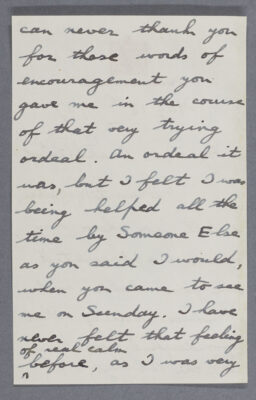 can never thank you
for those words of
encouragement you
gave me in the course
of that very trying
ordeal. An ordeal it
was, but I felt I was
being helped all the
time by Someone Else
as you said I would,
when you came to see
me on Sunday. I have
never felt that feeling
of real calm
before, as I was very